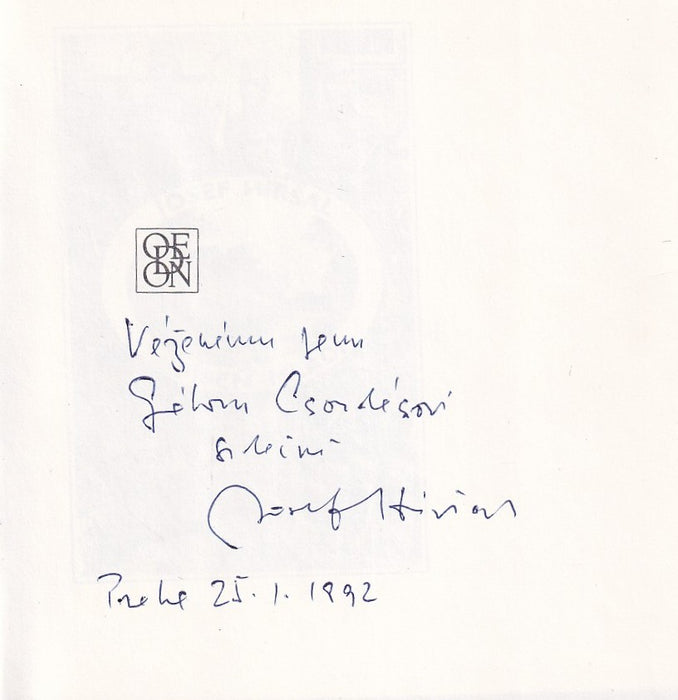 ODEON
Váženému panu
Gáboru Csordásovi
srdečně
Josef Hiršal
Praha 25. 1. 1992